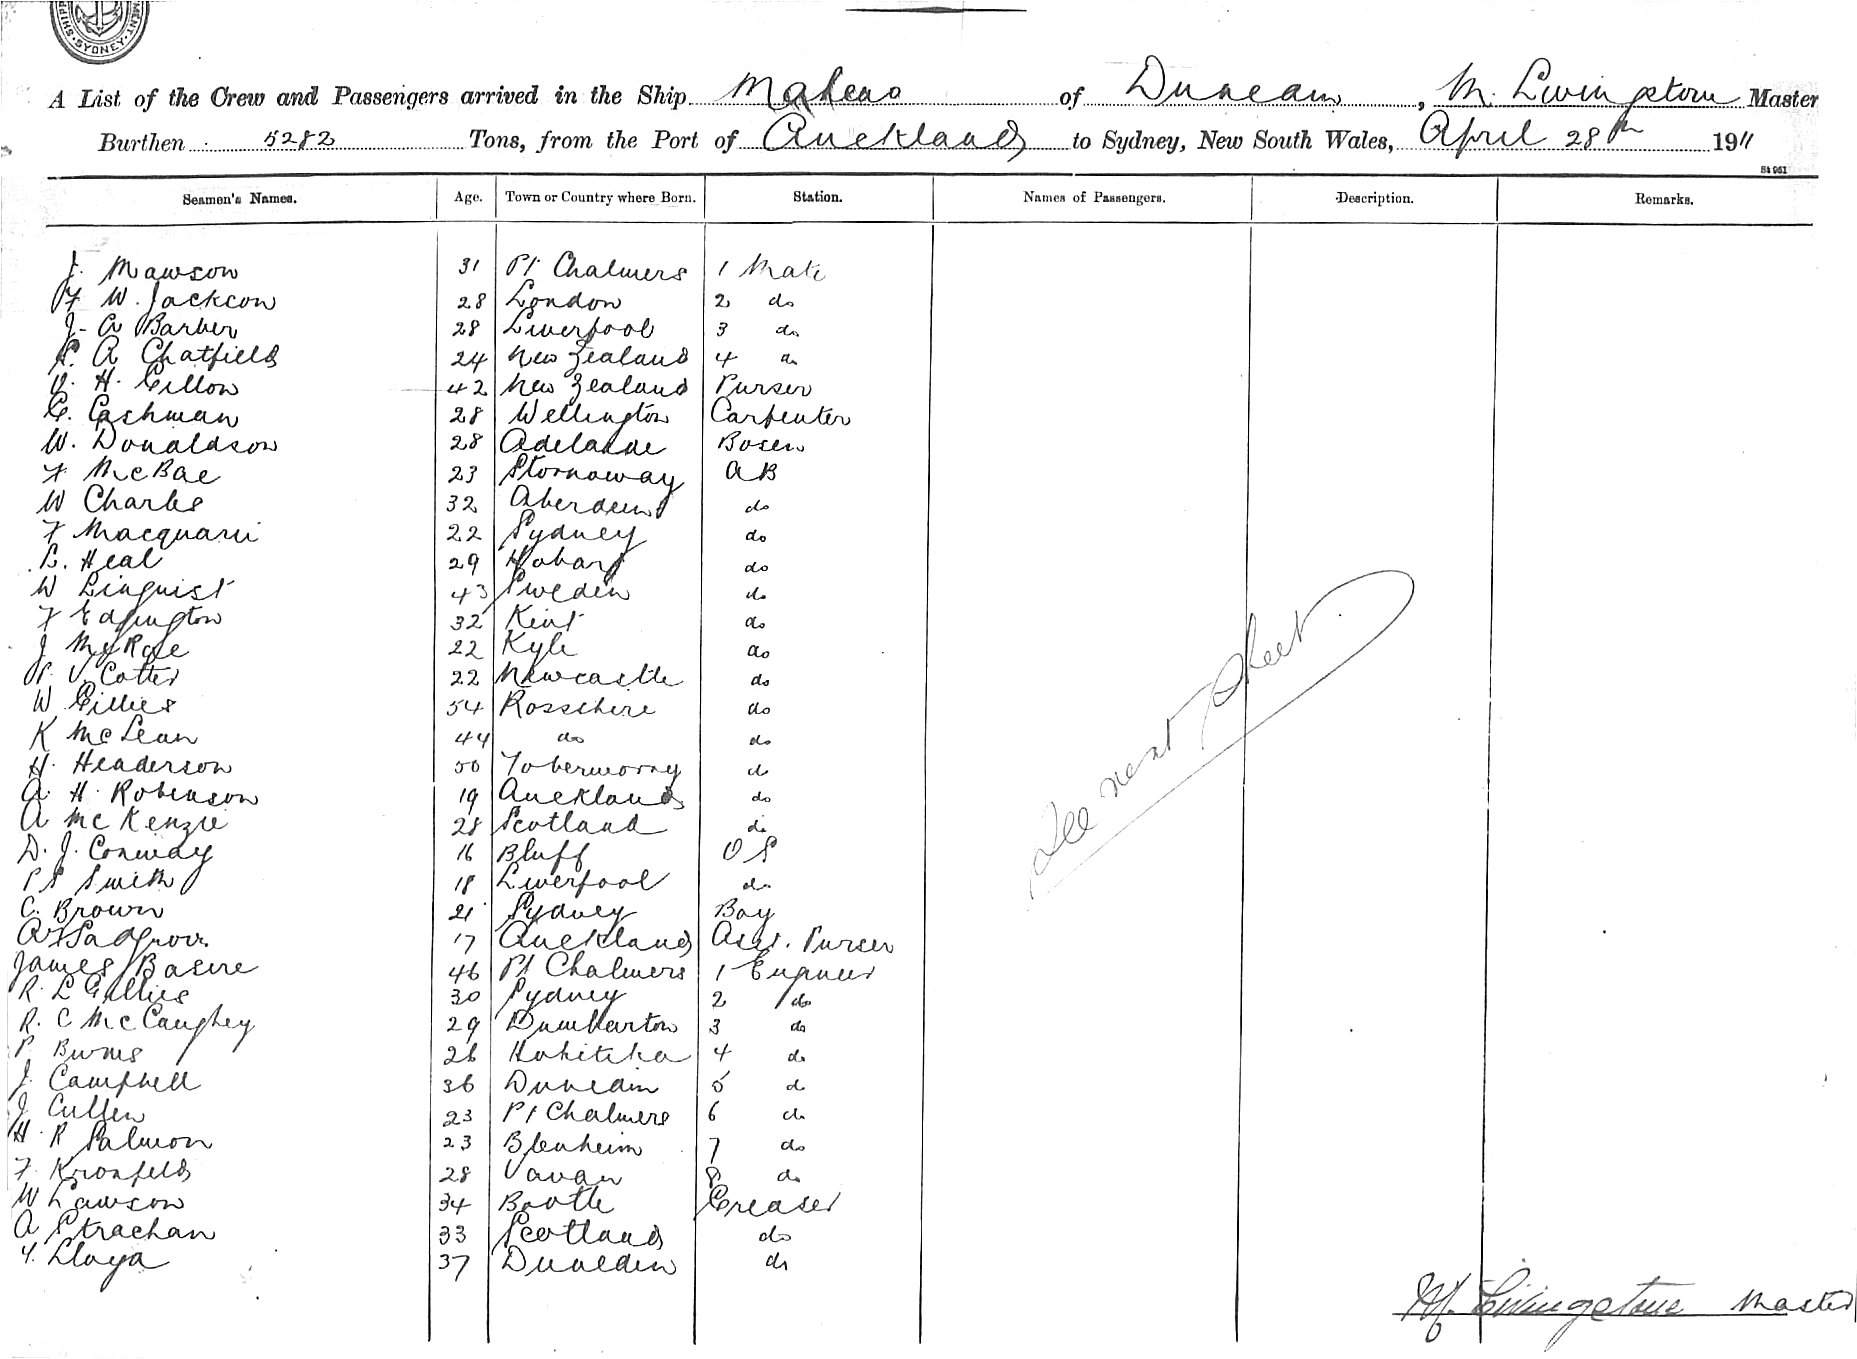 SYDNEY
A List of the Crew and Passengers arrived in the Ship Maheno of Dunedin, M. Livingstone Master
Burthen 5282 Tons, from the Port of Auckland to Sydney, New South Wales, April 28th 1911
St 951
Seamen's Names. Age. Town or Country where Born. Station. Names of Passengers. Description. Remarks.
J. Mawson 31 Pt Chalmers 1 Mate
F W. Jackson 28 London 2 do
J. A Barber 28 Liverpool 3 do
A Chatfield 24 New Zealand 4 do
H. Gillon 42 New Zealand Purser
Cashman 28 Wellington Carpenter
W. Donaldson 28 Adelaide Bosen
F McRae 23 Stornoway AB
W Charles 32 Aberdeen do
F Macquarie 22 Sydney do
Heal 29 Hobart do
W Linquist 43 Sweden do
F Edgington 32 Kent do
J McRae 22 Kyle do
P. V. Cotter 22 Newcastle do
W Gillies 54 Rosshire do
K McLean 44 do do
H. Henderson 50 Tobermorry do
A. H. Robinson 19 Auckland do
A McKenzie 28 Scotland do
D. J. Conway 16 Bluff O S
P S Smith 18 Liverpool do
C. Brown 21 Sydney Boy
17 Auckland Asst. Purser
James Basire 46 Pt Chalmers 1 Engineer
R. L Gillies 30 Sydney 2 do
R. C McCaughey 29 Dumbarton 3 do
P Burns 26 Hokitika 4 do
J. Campbell 36 Dunedin 5 do
J Cullen 23 Pt Chalmers 6 do
H. R Salmon 23 Blenheim 7 do
F. Kronfeld 28 Vavau 8 do
W Lawson 34 Bootle Greaser
A Strachan 33 Scotland do
Lloyd 37 Dunedin do
See next sheet.
M. Livingstone Master